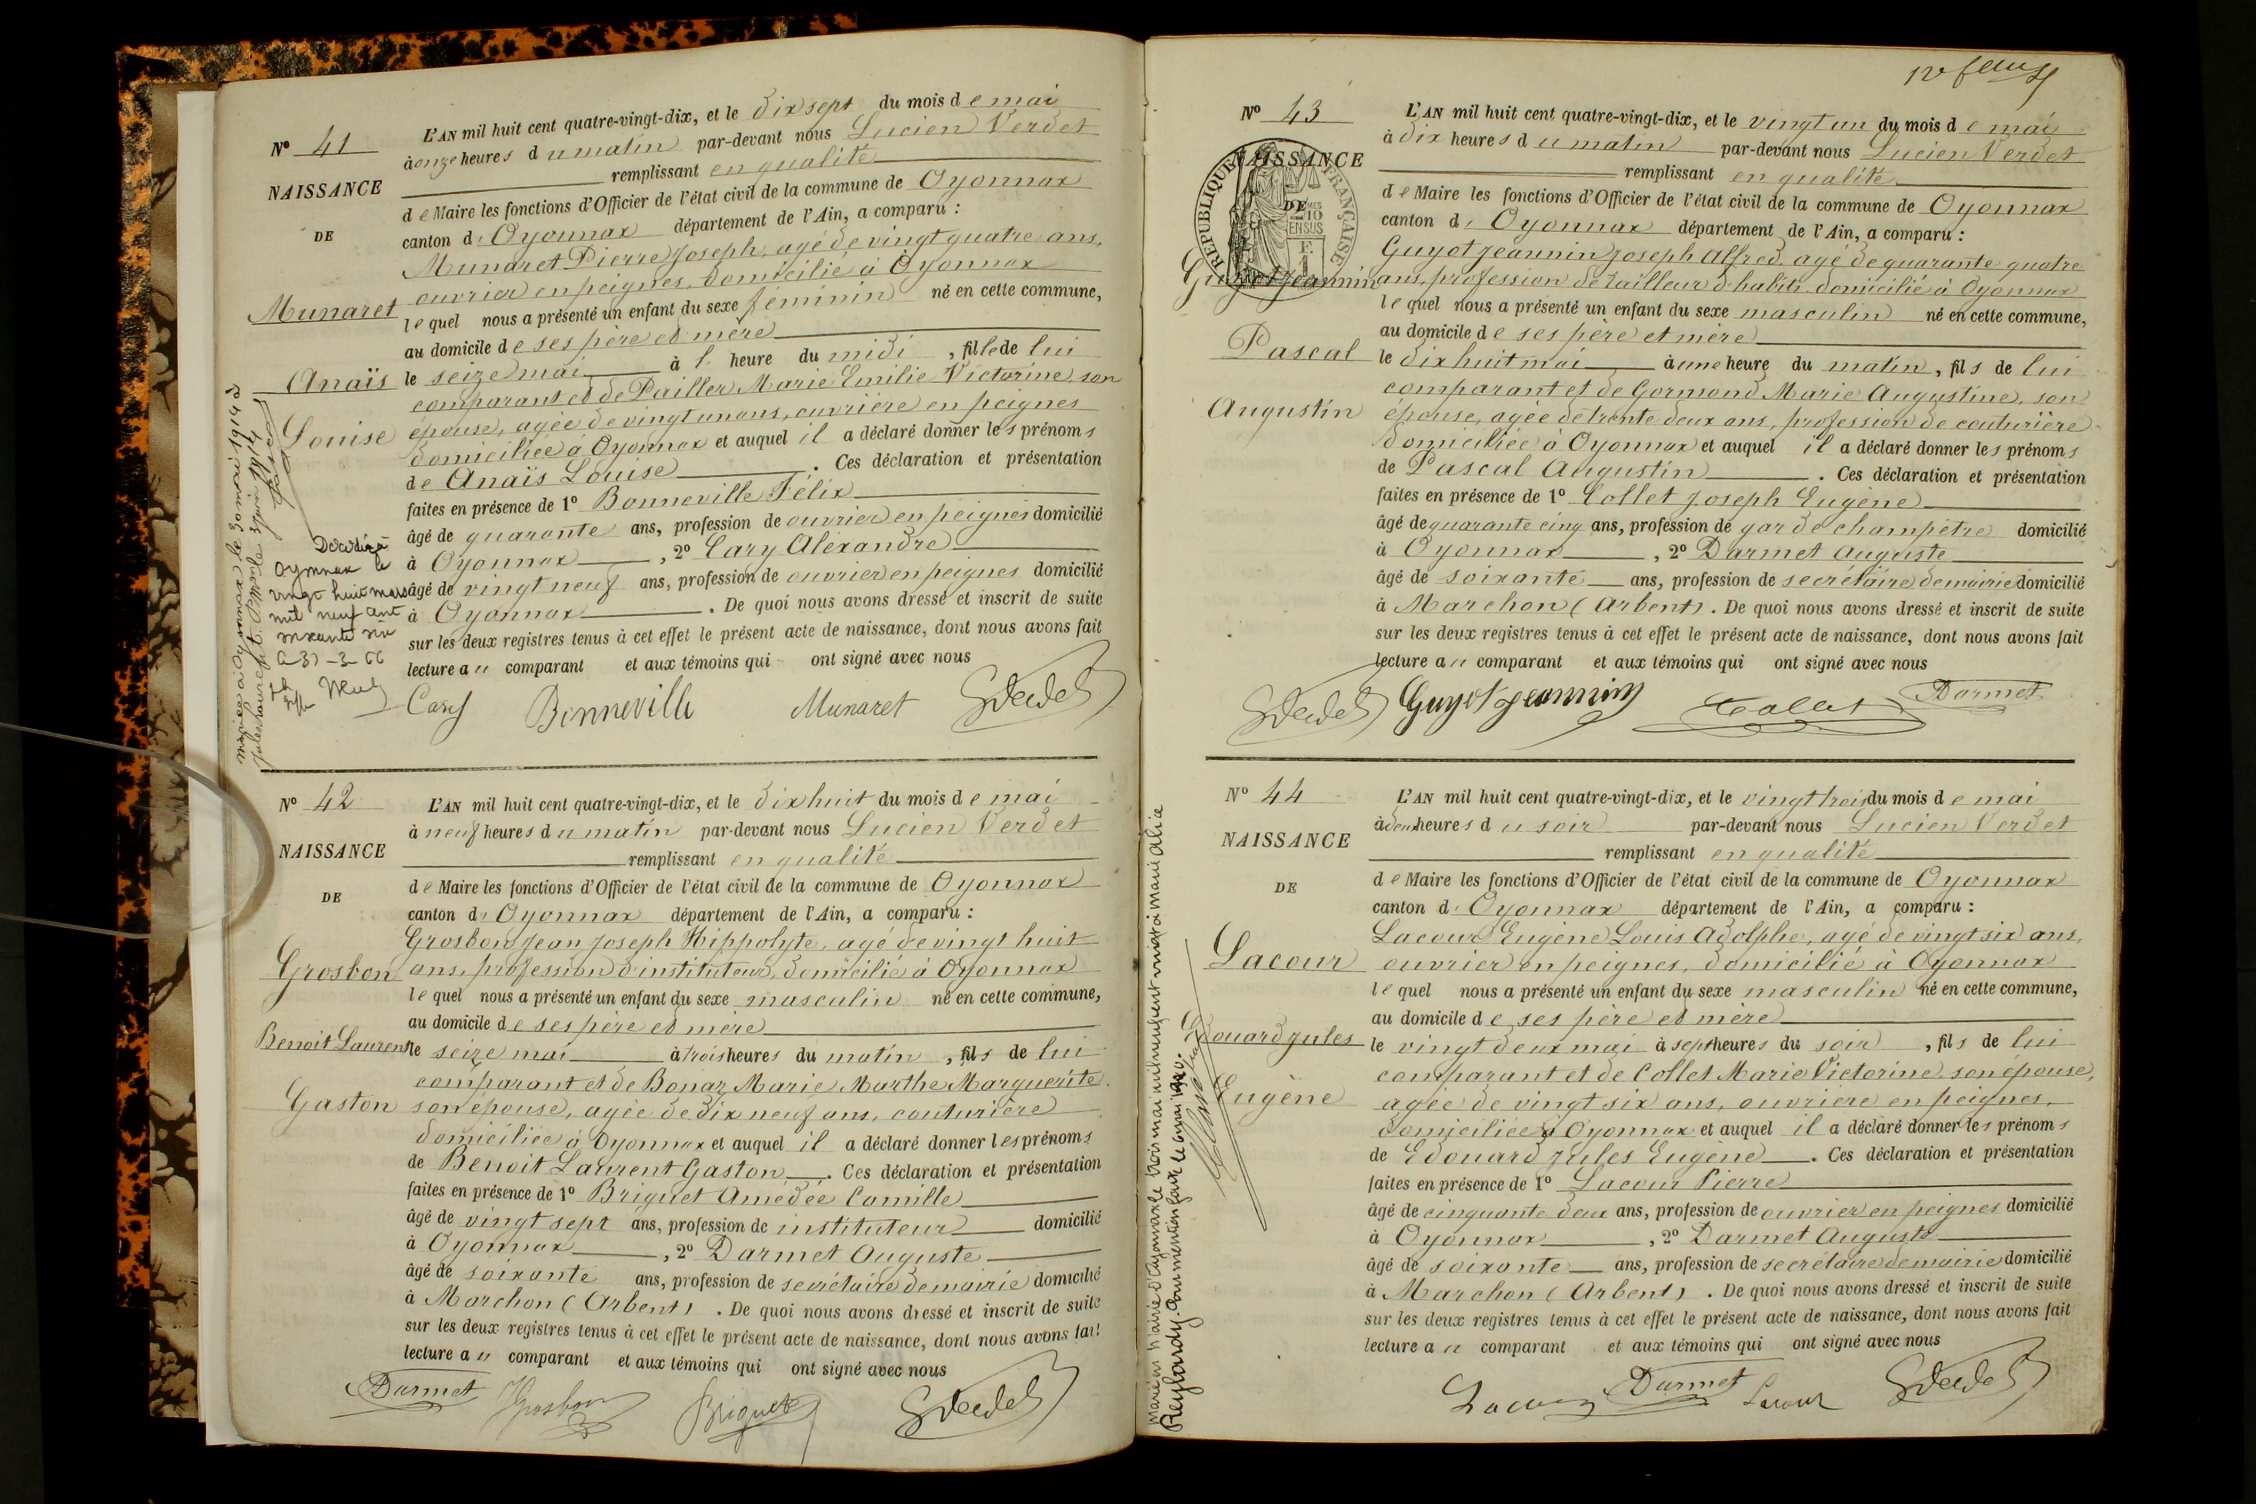 N° 41
NAISSANCE
DE
Munaret
Anaïs
Louise
L'AN mil huit cent quatre-vingt-dix, et le dix sept du mois de mai
à onze heures du matin par-devant nous Lucien Verdet
remplissant en qualité
de Maire les fonctions d'Officier de l'état civil de la commune de Oyonnax
canton d' Oyonnax département de l'Ain, a comparu :
Munaret Pierre Joseph, agé de vingt quatre ans,
ouvrier en peignes, domicilié à Oyonnax
lequel nous a présenté un enfant du sexe féminin né en cette commune,
au domicile de ses père et mère
le seize mai à 1 heure du midi, fille de lui
comparant et de Pailler Marie Emilie Victorine, son
épouse, agée de vingt un ans, ouvrière en peignes
domiciliée à Oyonnax et auquel il a déclaré donner les prénoms
de Anaïs Louise. Ces déclaration et présentation
faites en présence de 1° Bonneville Félix
âgé de quarante ans, profession de ouvrier en peignes domicilié
à Oyonnax, 2° Cary Alexandre
âgé de vingt neuf ans, profession de ouvrier en peignes domicilié
à Oyonnax. De quoi nous avons dressé et inscrit de suite
sur les deux registres tenus à cet effet le présent acte de naissance, dont nous avons fait
lecture au comparant et aux témoins qui ont signé avec nous
Décédée à
Oyonnax le
vingt huit mars
mil neuf cent
soixante six
31-3-66
Cary Bonneville Munaret
N° 42
NAISSANCE
DE
Grosbon
Benoit Laurent
Gaston
L'AN mil huit cent quatre-vingt-dix, et le dix huit du mois de mai
à neuf heures du matin par-devant nous Lucien Verdet
remplissant en qualité
de Maire les fonctions d'Officier de l'état civil de la commune de Oyonnax
canton d' Oyonnax département de l'Ain, a comparu :
Grosbon Jean Joseph Hippolyte, agé de vingt huit
ans, profession d'instituteur, domicilié à Oyonnax
lequel nous a présenté un enfant du sexe masculin né en cette commune,
au domicile de ses père et mère
le seize mai à trois heures du matin, fils de lui
comparant et de Bonaz Marie Marthe Marguerite
son épouse, agée de dix neuf ans, couturière
domiciliée à Oyonnax et auquel il a déclaré donner les prénoms
de Benoit Laurent Gaston. Ces déclaration et présentation
faites en présence de 1° Briguet Amédée Camille
âgé de vingt sept ans, profession de instituteur domicilié
à Oyonnax, 2° Darmet Auguste
âgé de soixante ans, profession de secrétaire de mairie domicilié
à Marchon (Arbent). De quoi nous avons dressé et inscrit de suite
sur les deux registres tenus à cet effet le présent acte de naissance, dont nous avons fait
lecture au comparant et aux témoins qui ont signé avec nous
Darmet Grosbon Briguet
N° 43
NAISSANCE
DE
RÉPUBLIQUE FRANÇAISE
Guyot Jeannin
Pascal
Augustin
L'AN mil huit cent quatre-vingt-dix, et le vingt un du mois de mai
à dix heures du matin par-devant nous Lucien Verdet
remplissant en qualité
de Maire les fonctions d'Officier de l'état civil de la commune de Oyonnax
canton d' Oyonnax département de l'Ain, a comparu :
Guyot Jeannin Joseph Alfred, agé de quarante quatre
ans, profession de tailleur d'habits, domicilié à Oyonnax
lequel nous a présenté un enfant du sexe masculin né en cette commune,
au domicile de ses père et mère
le dix huit mai à une heure du matin, fils de lui
comparant et de Gormond Marie Augustine, son
épouse, agée de trente deux ans, profession de couturière
domiciliée à Oyonnax et auquel il a déclaré donner les prénoms
de Pascal Augustin. Ces déclaration et présentation
faites en présence de 1° Collet Joseph Eugène
âgé de quarante cinq ans, profession de garde champêtre domicilié
à Oyonnax, 2° Darmet Auguste
âgé de soixante ans, profession de secrétaire de mairie domicilié
à Marchon (Arbent). De quoi nous avons dressé et inscrit de suite
sur les deux registres tenus à cet effet le présent acte de naissance, dont nous avons fait
lecture au comparant et aux témoins qui ont signé avec nous
Guyot Jeannin Collet Darmet
N° 44
NAISSANCE
DE
Lacour
Edouard Jules
Eugène
L'AN mil huit cent quatre-vingt-dix, et le vingt trois du mois de mai
à deux heures du soir par-devant nous Lucien Verdet
remplissant en qualité
de Maire les fonctions d'Officier de l'état civil de la commune de Oyonnax
canton d' Oyonnax département de l'Ain, a comparu :
Lacour Eugène Louis Adolphe, agé de vingt six ans,
ouvrier en peignes, domicilié à Oyonnax
lequel nous a présenté un enfant du sexe masculin né en cette commune,
au domicile de ses père et mère
le vingt deux mai à sept heures du soir, fils de lui
comparant et de Collet Marie Victorine, son épouse,
agée de vingt six ans, ouvrière en peignes,
domiciliée à Oyonnax et auquel il a déclaré donner les prénoms
de Edouard Jules Eugène. Ces déclaration et présentation
faites en présence de 1° Lacour Pierre
âgé de cinquante deux ans, profession de ouvrier en peignes domicilié
à Oyonnax, 2° Darmet Auguste
âgé de soixante ans, profession de secrétaire de mairie domicilié
à Marchon (Arbent). De quoi nous avons dressé et inscrit de suite
sur les deux registres tenus à cet effet le présent acte de naissance, dont nous avons fait
lecture au comparant et aux témoins qui ont signé avec nous
Lacour Darmet Lacour